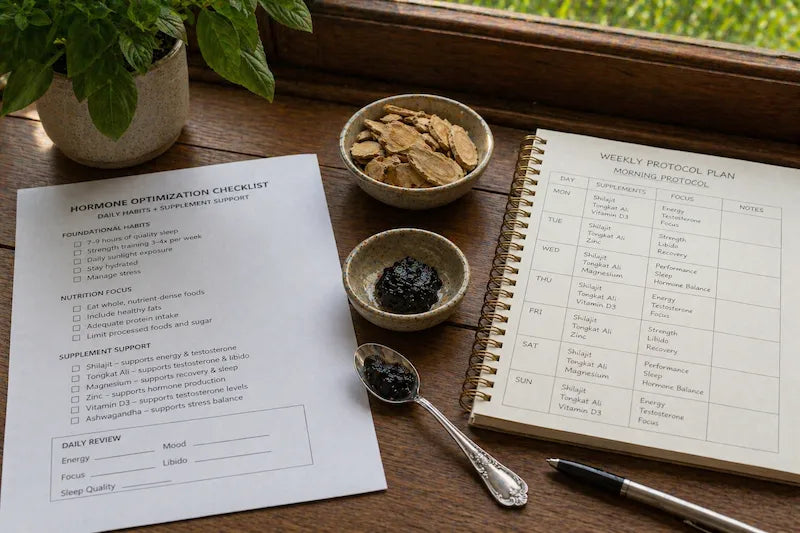 HORMONE OPTIMIZATION CHECKLIST
DAILY HABITS + SUPPLEMENT SUPPORT
FOUNDATIONAL HABITS
7–9 hours of quality sleep
Strength training 3–4x per week
Daily sunlight exposure
Stay hydrated
Manage stress
NUTRITION FOCUS
Eat whole, nutrient-dense foods
Include healthy fats
Adequate protein intake
Limit processed foods and sugar
SUPPLEMENT SUPPORT
Shilajit – supports energy & testosterone
Tongkat Ali – supports testosterone & libido
Magnesium – supports recovery & sleep
Zinc – supports hormone production
Vitamin D3 – supports testosterone levels
Ashwagandha – supports stress balance
DAILY REVIEW
Energy Mood
Focus Libido
Sleep Quality
WEEKLY PROTOCOL PLAN
MORNING PROTOCOL
DAY SUPPLEMENTS FOCUS NOTES
MON Shilajit Energy
Tongkat Ali Testosterone
Vitamin D3 Focus
TUE Shilajit Strength
Tongkat Ali Libido
Zinc Recovery
WED Shilajit Performance
Tongkat Ali Sleep
Magnesium Hormone Balance
THU Shilajit Energy
Tongkat Ali Testosterone
Vitamin D3 Focus
FRI Shilajit Strength
Tongkat Ali Libido
Zinc Recovery
SAT Shilajit Performance
Tongkat Ali Sleep
Magnesium Hormone Balance
SUN Shilajit Energy
Tongkat Ali Testosterone
Vitamin D3 Focus